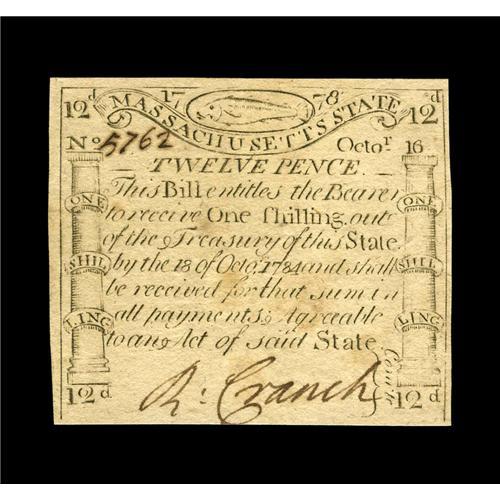 12d 17 78 12d
MASSACHUSETTS STATE
No 5762 Octor 16
TWELVE PENCE
This Bill entitles the Bearer
to receive One ſhilling out
of the Treasury of this State
by the 18 of Octo, 1784 and shall
be received for that sum in
all payments Agreeable
to an Act of said State
ONE ONE
SHIL SHIL
LING LING
R: Cranch Com'te
12d 12d